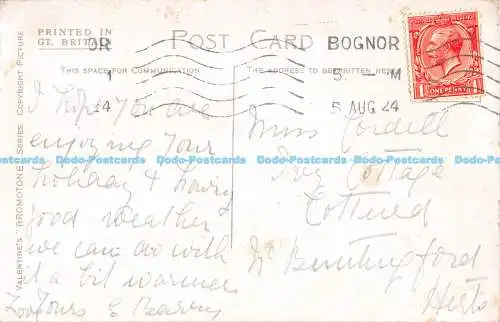 PRINTED IN
GT. BRITAIN
POST CARD
BOGNOR
THIS SPACE FOR COMMUNICATION
THE ADDRESS TO BE WRITTEN HERE
OR
1
24
5. — M
5 AUG 24
1 ONE PENNY
VALENTINE'S "BROMOTONE" SERIES. COPYRIGHT PICTURE
I hope you are
enjoying your
holiday & having
good weather
we can do with
it a bit warmer
Love Yours E Barry
Miss Cordell
Ivy Cottage
Cottered
Nr Buntingford
Herts
Dodo-Postcards Dodo-Postcards Dodo-Postcards Dodo-Postcards